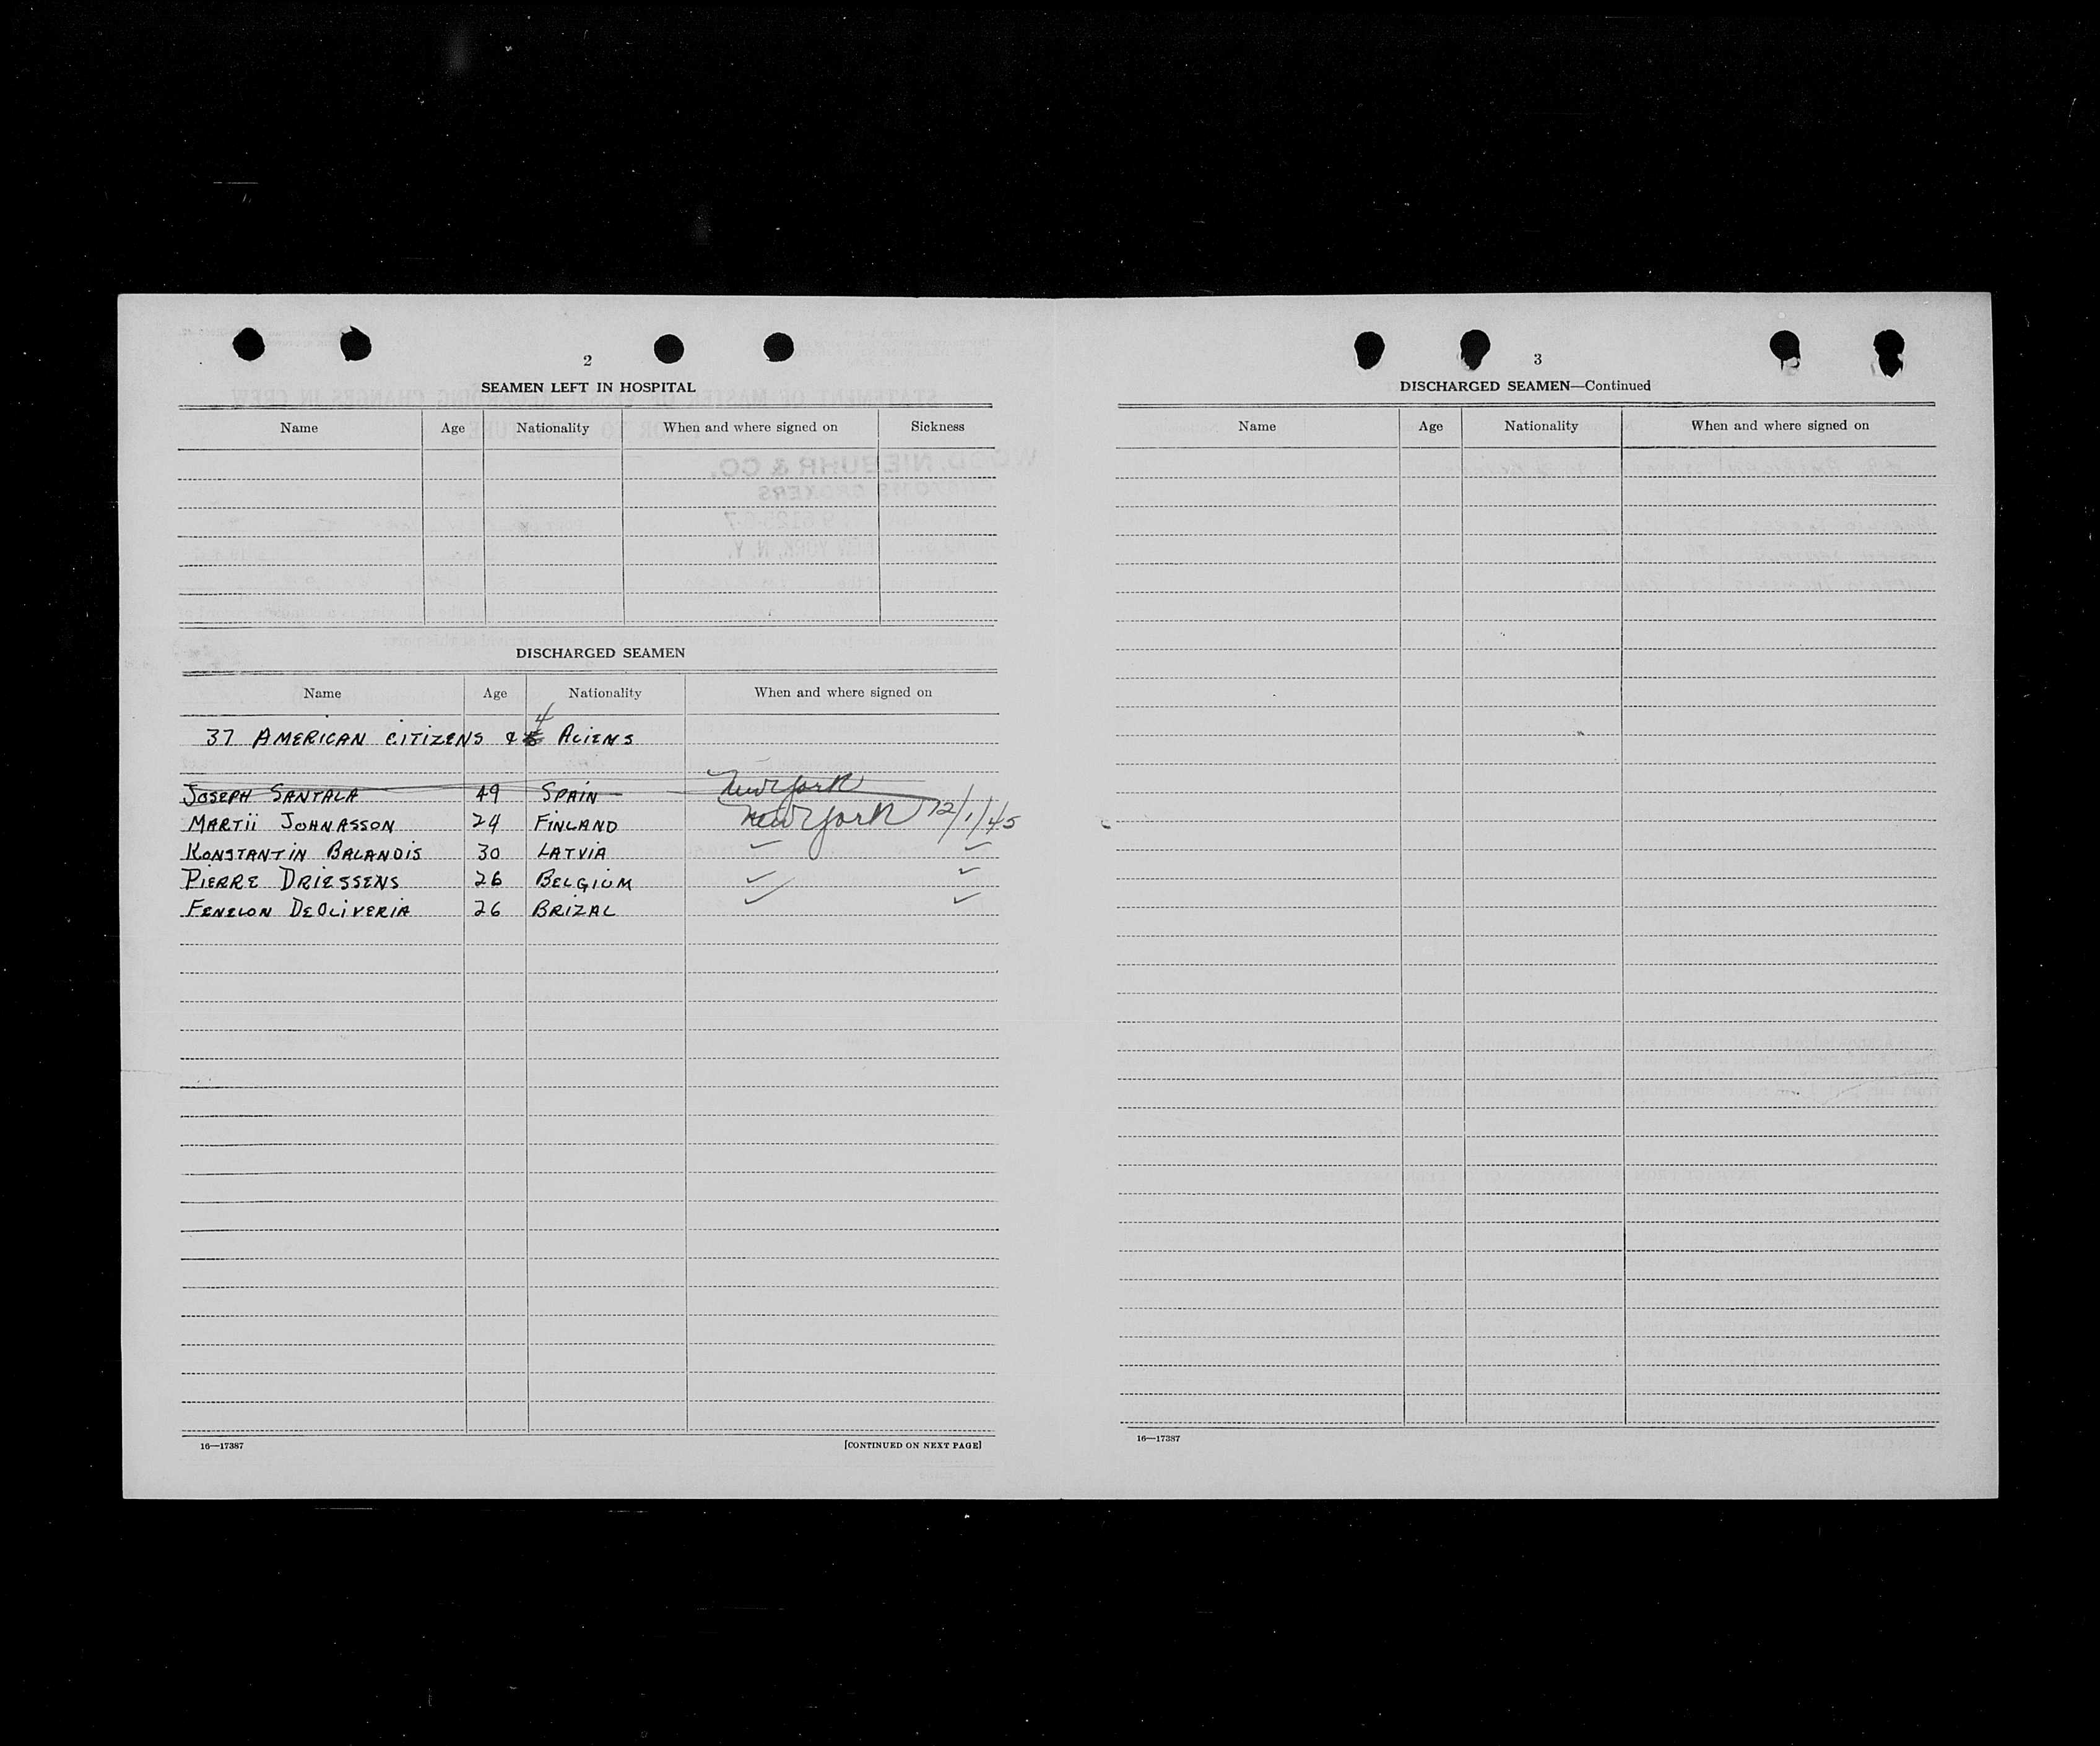 2
SEAMEN LEFT IN HOSPITAL
Name Age Nationality When and where signed on Sickness
DISCHARGED SEAMEN
Name Age Nationality When and where signed on
4
37 AMERICAN CITIZENS & 5 ALIENS
JOSEPH SANTALA 49 SPAIN New York
MARTII JOHNASSON 24 FINLAND New York 12/1/45
KONSTANTIN BALANDIS 30 LATVIA ✓ ✓
PIERRE DRIESSENS 26 BELGIUM ✓ ✓
FENELON DEOLIVERIA 26 BRIZAL ✓ ✓
16—17387 [CONTINUED ON NEXT PAGE]
3
DISCHARGED SEAMEN—Continued
Name Age Nationality When and where signed on
16—17387